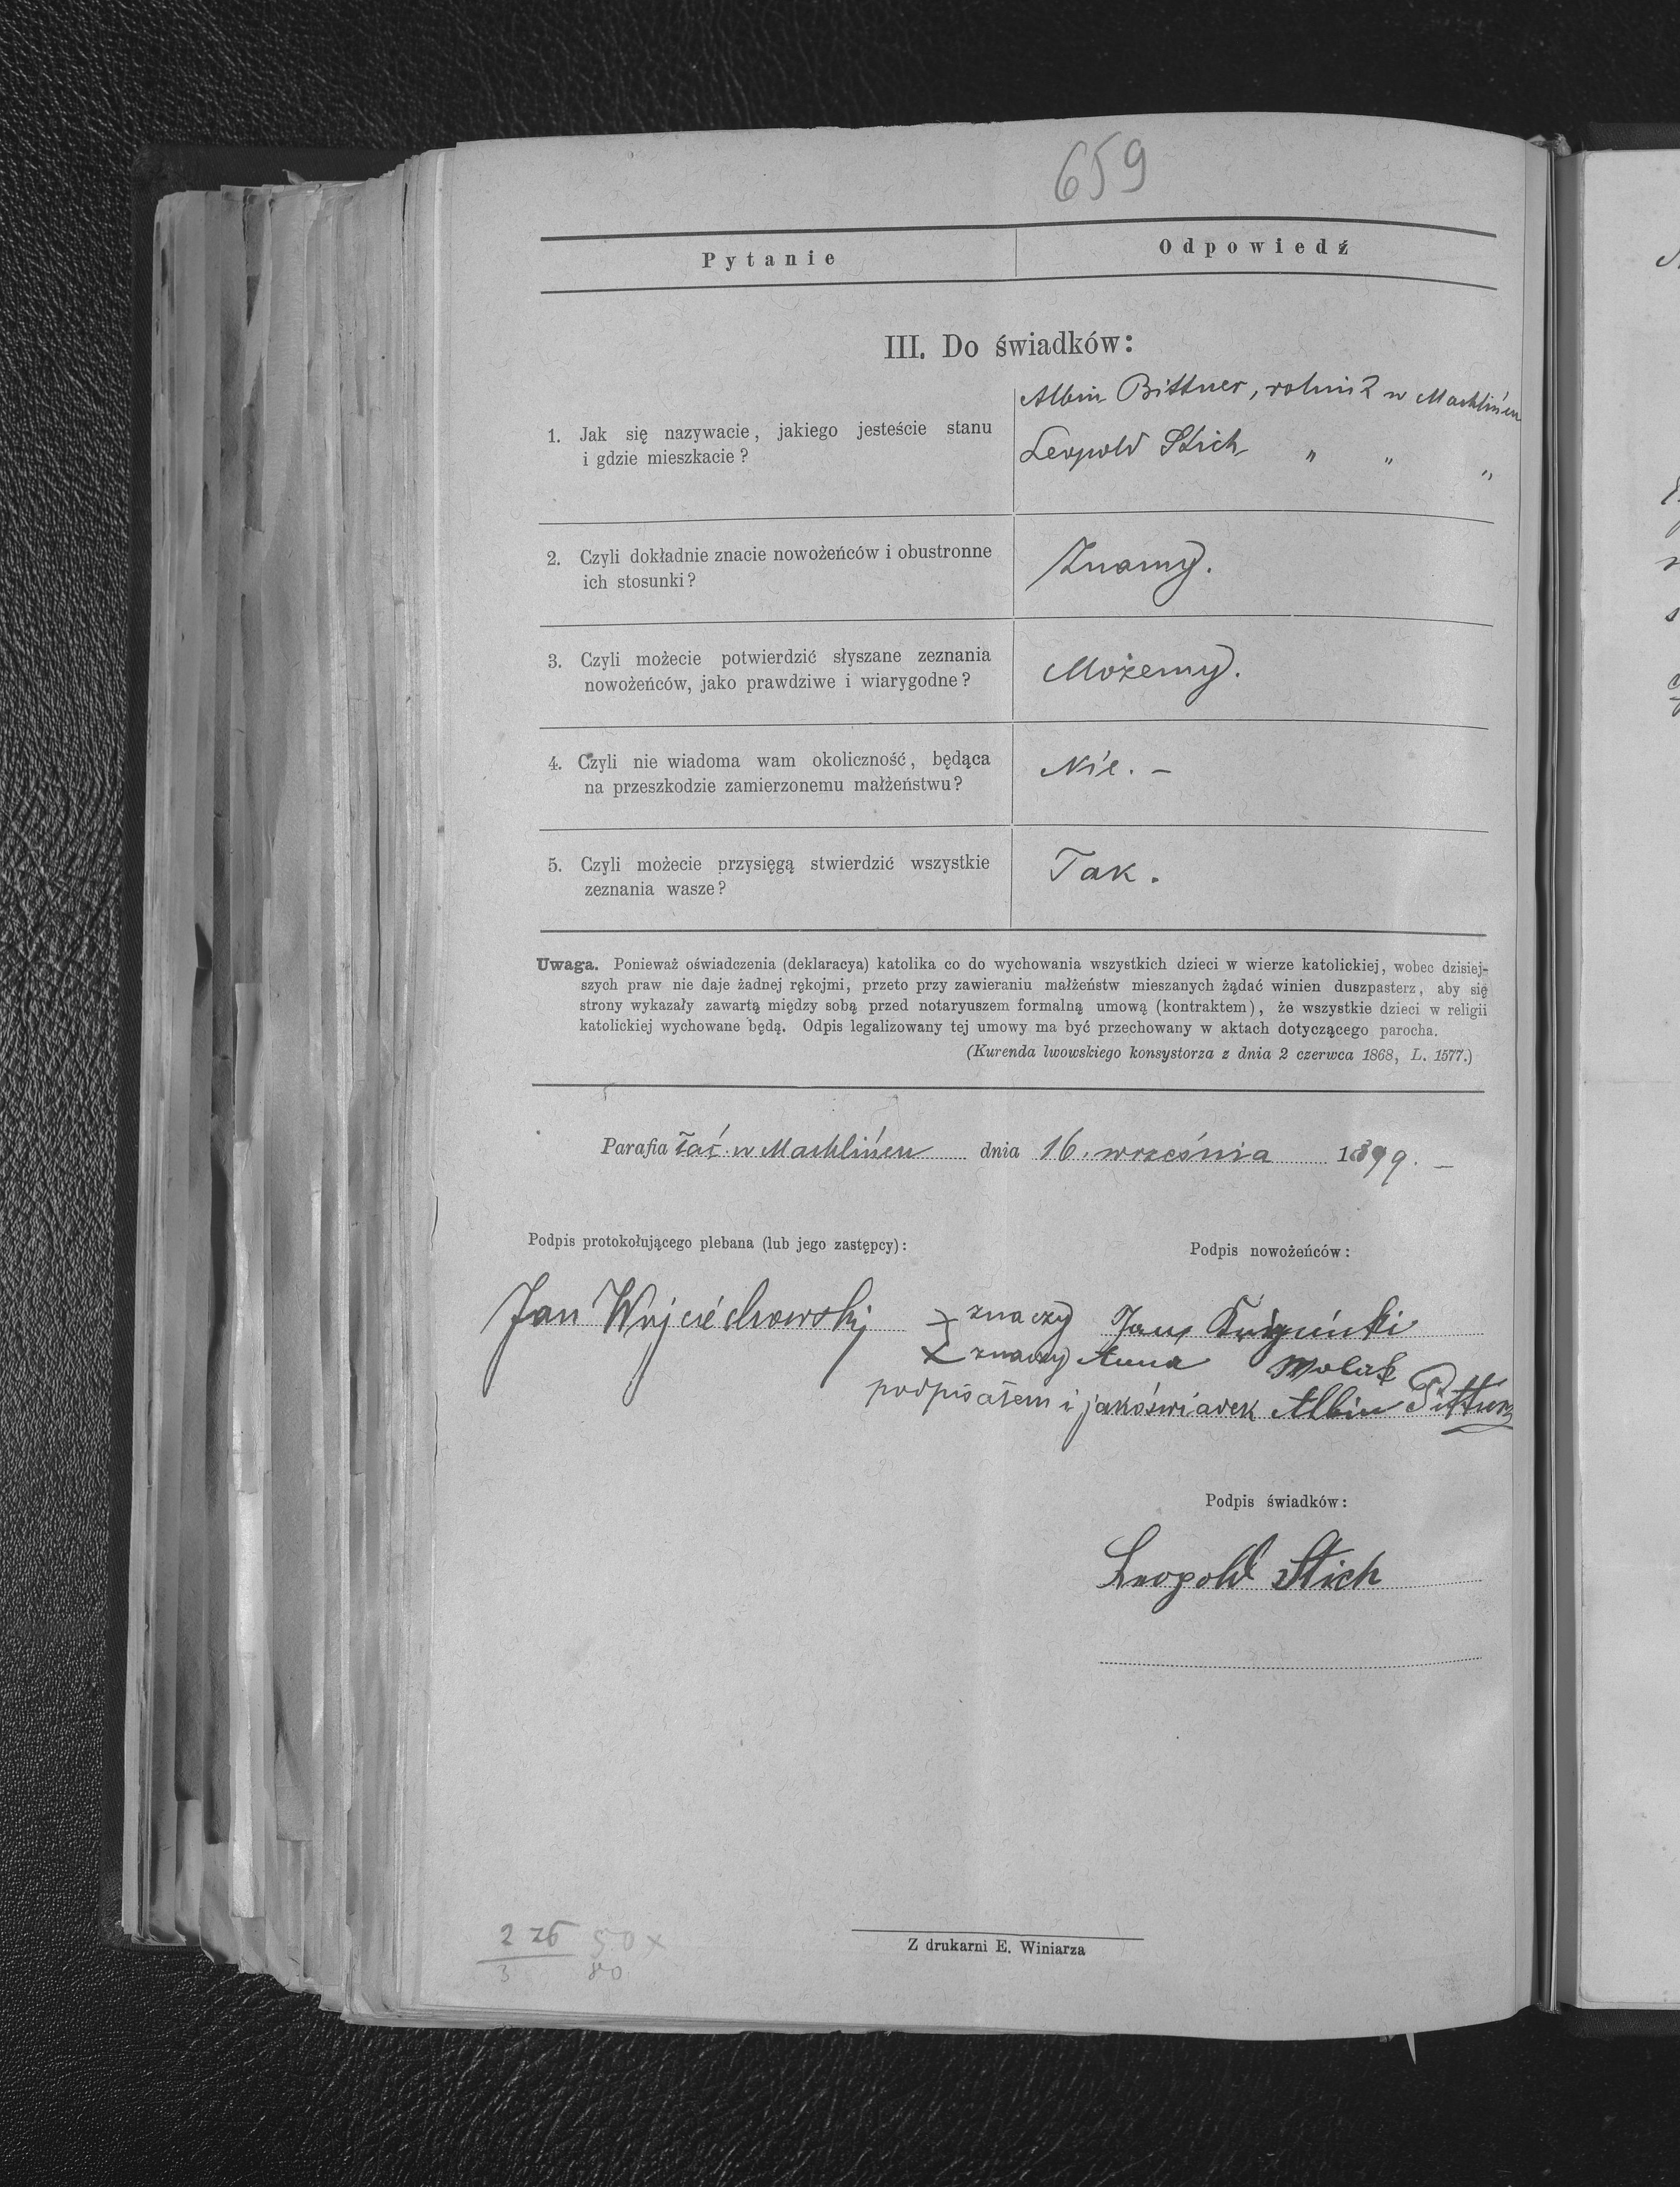 659
Pytanie
Odpowiedź
III. Do świadków:
1. Jak się nazywacie, jakiego jesteście stanu
i gdzie mieszkacie?
Albin Bittner, rolnik w Machlińcu
Leopold Stich " " "
2. Czyli dokładnie znacie nowożeńców i obustronne
ich stosunki?
Znamy.
3. Czyli możecie potwierdzić słyszane zeznania
nowożeńców, jako prawdziwe i wiarygodne?
Możemy.
4. Czyli nie wiadoma wam okoliczność, będąca
na przeszkodzie zamierzonemu małżeństwu?
Nie. –
5. Czyli możecie przysięgą stwierdzić wszystkie
zeznania wasze?
Tak.
Uwaga. Ponieważ oświadczenia (deklaracya) katolika co do wychowania wszystkich dzieci w wierze katolickiej, wobec dzisiej-
szych praw nie daje żadnej rękojmi, przeto przy zawieraniu małżeństw mieszanych żądać winien duszpasterz, aby się
strony wykazały zawartą między sobą przed notaryuszem formalną umową (kontraktem), że wszystkie dzieci w religii
katolickiej wychowane będą. Odpis legalizowany tej umowy ma być przechowany w aktach dotyczącego parocha.
(Kurenda lwowskiego konsystorza z dnia 2 czerwca 1868, L. 1577.)
Parafia łać. w Machlińcu dnia 16. września 1899. –
Podpis protokołującego plebana (lub jego zastępcy):
Podpis nowożeńców:
Jan Wojciechowski
+ znaczy Jan
× znaczy Anna Wolak
podpisałem i jako świadek Albin Bittner
Podpis świadków:
Leopold Stich
Z drukarni E. Winiarza